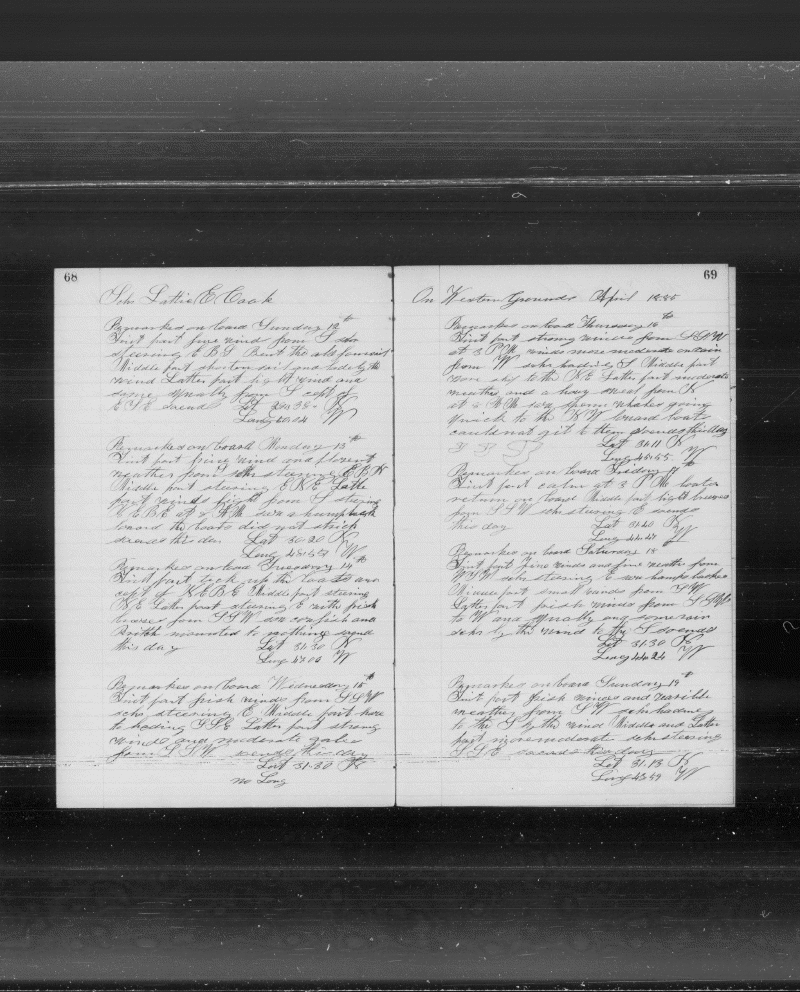 68
Schr Lottie E Cook
Remarks on board Sunday 12th
First part fine wind from S schr
steering E B S Bent the old foresail
Middle part shorten sail and luff by the
wind Latter part light wind and
some squally from S capt of
E S E so ends Lat
Long W
Remarks on board Monday 13th
First part fine wind and pleasent
weather from schr steering E B N
Middle part steering E N E Latter
part winds light from S steering
N E B E at A M saw a humpback
lowerd the boats did not strick
so ends this day Lat 30-20 N
Long W
Remarks on board Tuesday 14th
First part took up the boats and
kept of N E B E Middle part steering
N E Latter part steering E with fresh
breeze from S S W saw and
amounted to nothing so ends
this day Lat 31-30 N
Long W
Remarks on board Wednesday 15th
First part fresh winds from S S W
schr steering E Middle part
heading S S E Latter part strong
winds and moderate gales
from S S W so ends this day
Lat 31-30 N
no Long
69
On Western Grounds April 1885
Remarks on board Thursday 16th
First part strong winds from S S W
at 3 P M winds more moderate and rain
from W schr heading S Middle part
to the N E Latter part moderate
weather and a heavy swell from N
at A M saw sperm whales going
quick to the N W lowerd boats
could not git to them so ends this day
Lat 31-11 N
Long 45-55 W
Remarks on board Friday 17th
First part calm at 3 P M boats
return on board Middle part light breeses
from S S W schr steering E so ends
this day Lat 31-40 N
Long W
Remarks on board Saturday 18
First part fine winds and fine weather from
W S W schr steering E saw humpbacks
Middle part small winds from S W
Latter part fresh winds from S S W
to W and squally and some rain
schr by the wind to the S so ends
Lat 31-30 N
Long 44-24 W
Remarks on board Sunday 19th
First part fresh winds and
weather from S W schr heading
to the S by the wind Middle and Latter
part more moderate schr steering
S S E so ends this day
Lat 31-13 N
Long 43-59 W